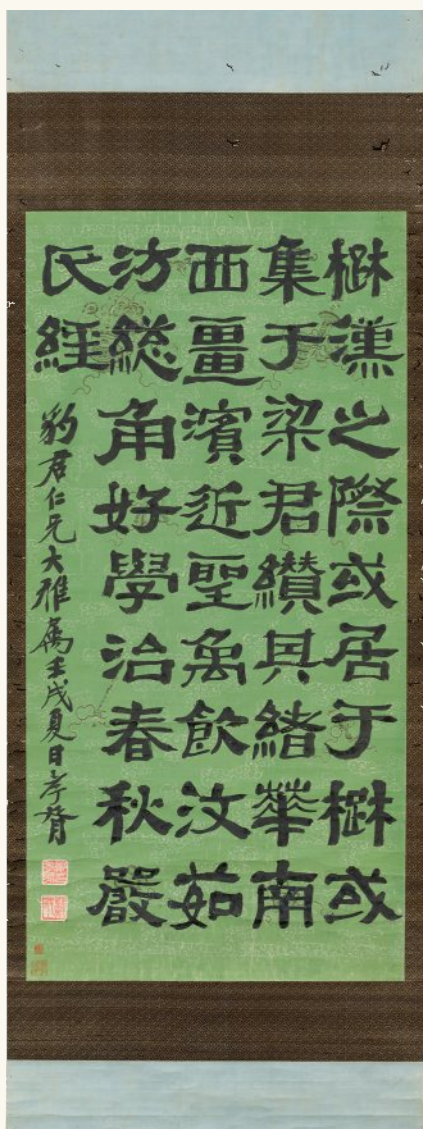 楚漢之際或居于楚或
集于梁君纘其緒華南
西疆濱近聖禹飲汶茹
汸緫角好學治春秋嚴
氏經
豹君仁兄大雅属壬戌夏日孝胥